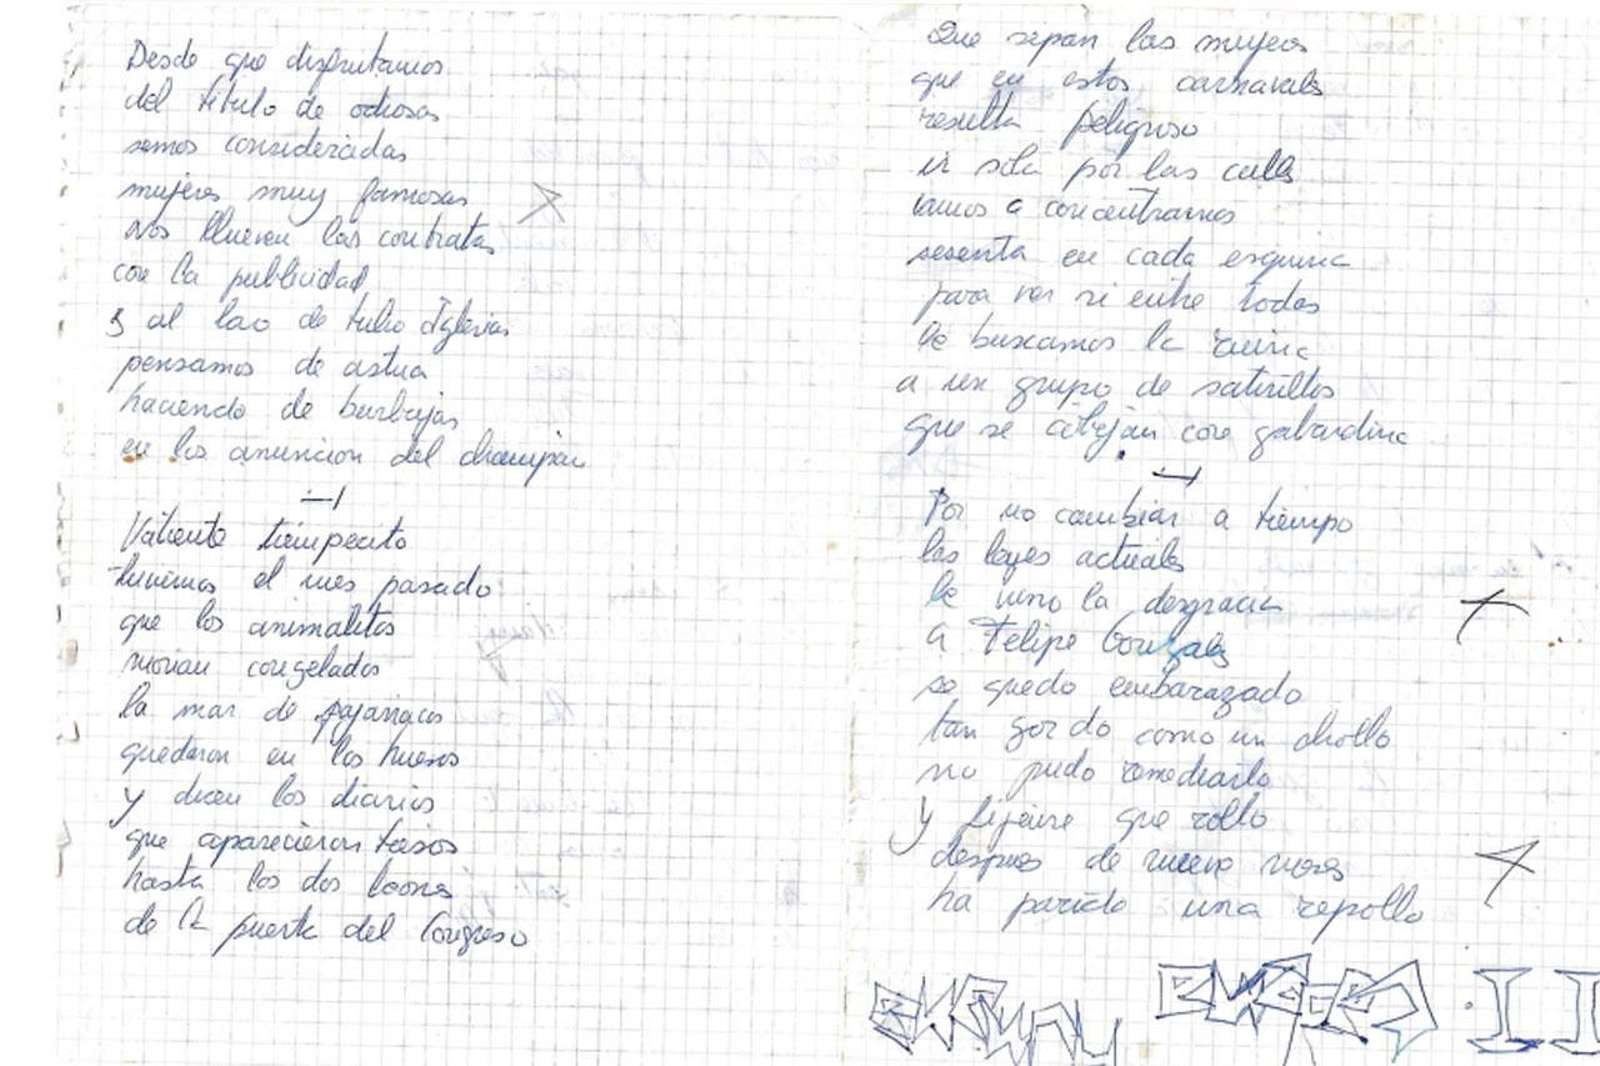 Desde que disfrutamos
del titulo de odiosas
somos consideradas
mujeres muy famosas
nos llueven las contratas
con la publicidad
y al lao de Julio Iglesias
pensamos de actua
haciendo de burbujas
en los anuncion del champan
Valiente tiempecito
tuvimos el mes pasado
que los animalitos
morian congelados
la mar de pajarracos
quedaron en los huesos
y dicen los diarios
que aparecieron tiesos
hasta los dos leones
de la puerta del Congreso
Que sepan las mujeres
que en estos carnavales
resulta peligroso
ir sola por las calles
vamos a concentrarnos
sesenta en cada esquina
para ver si entre todas
le buscamos la ruina
a un grupo de satirillos
que se cobijan con gabardina
Por no cambiar a tiempo
las leyes actuales
le vino la desgracia
a Felipe Gonzales
se quedo embarazado
tan gordo como un chollo
no pudo remediarlo
y fijaive que rollo
despues de nueve meses
ha parido una repollo
II